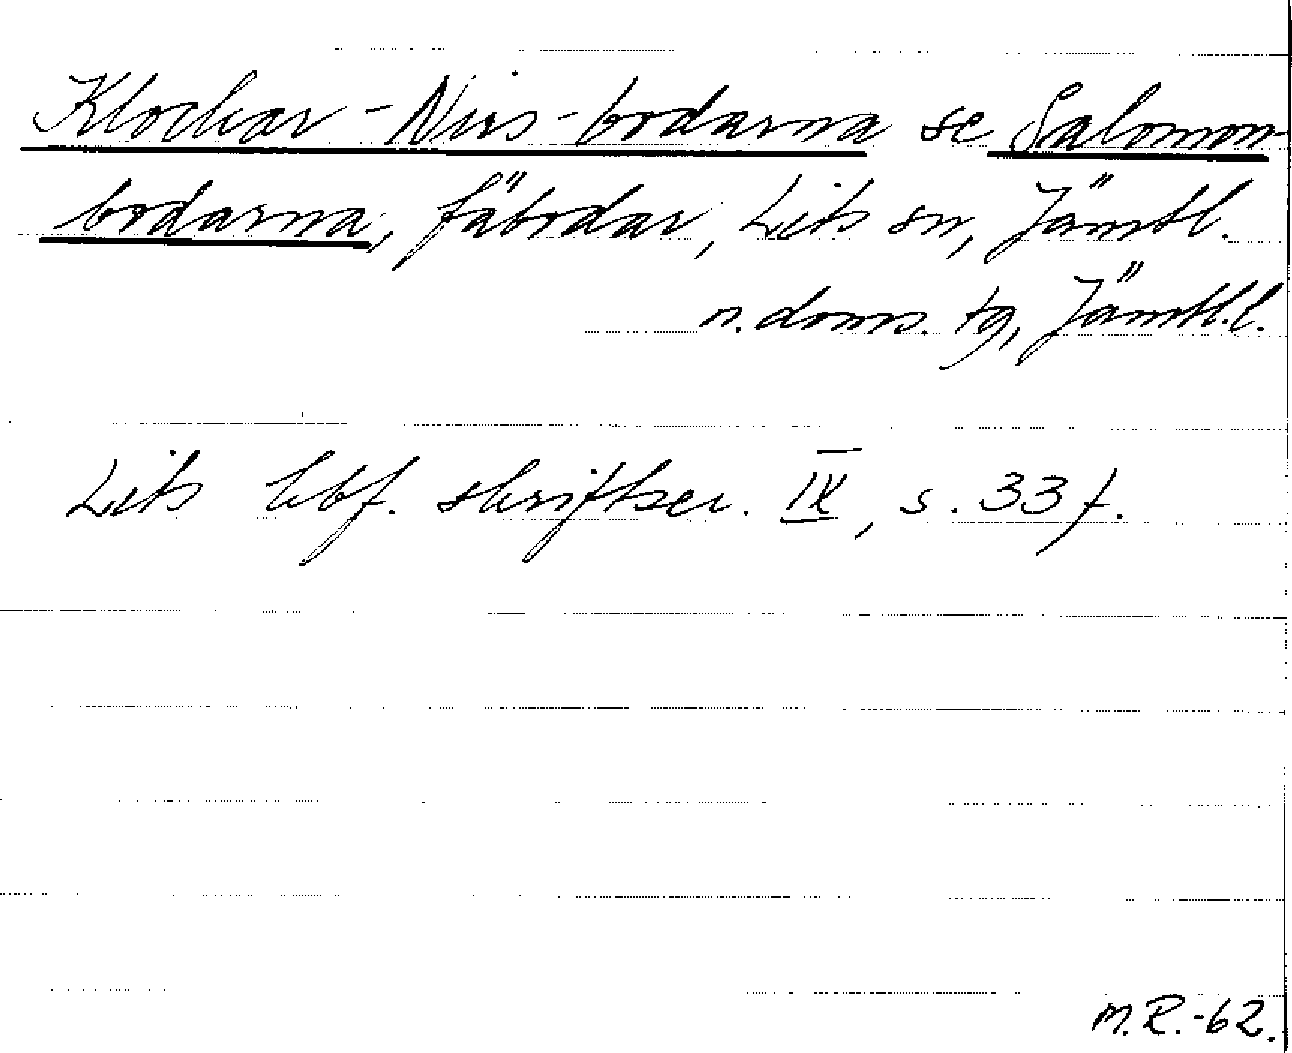 Klockar-Nirs-bodarna se Salomon-
bodarna, fäbodar, Lits sn, Jämtl.
n. doms. tg, Jämtl. l.
Lits hbf. skriftser. IX, s. 33 f.
M.R.-62.